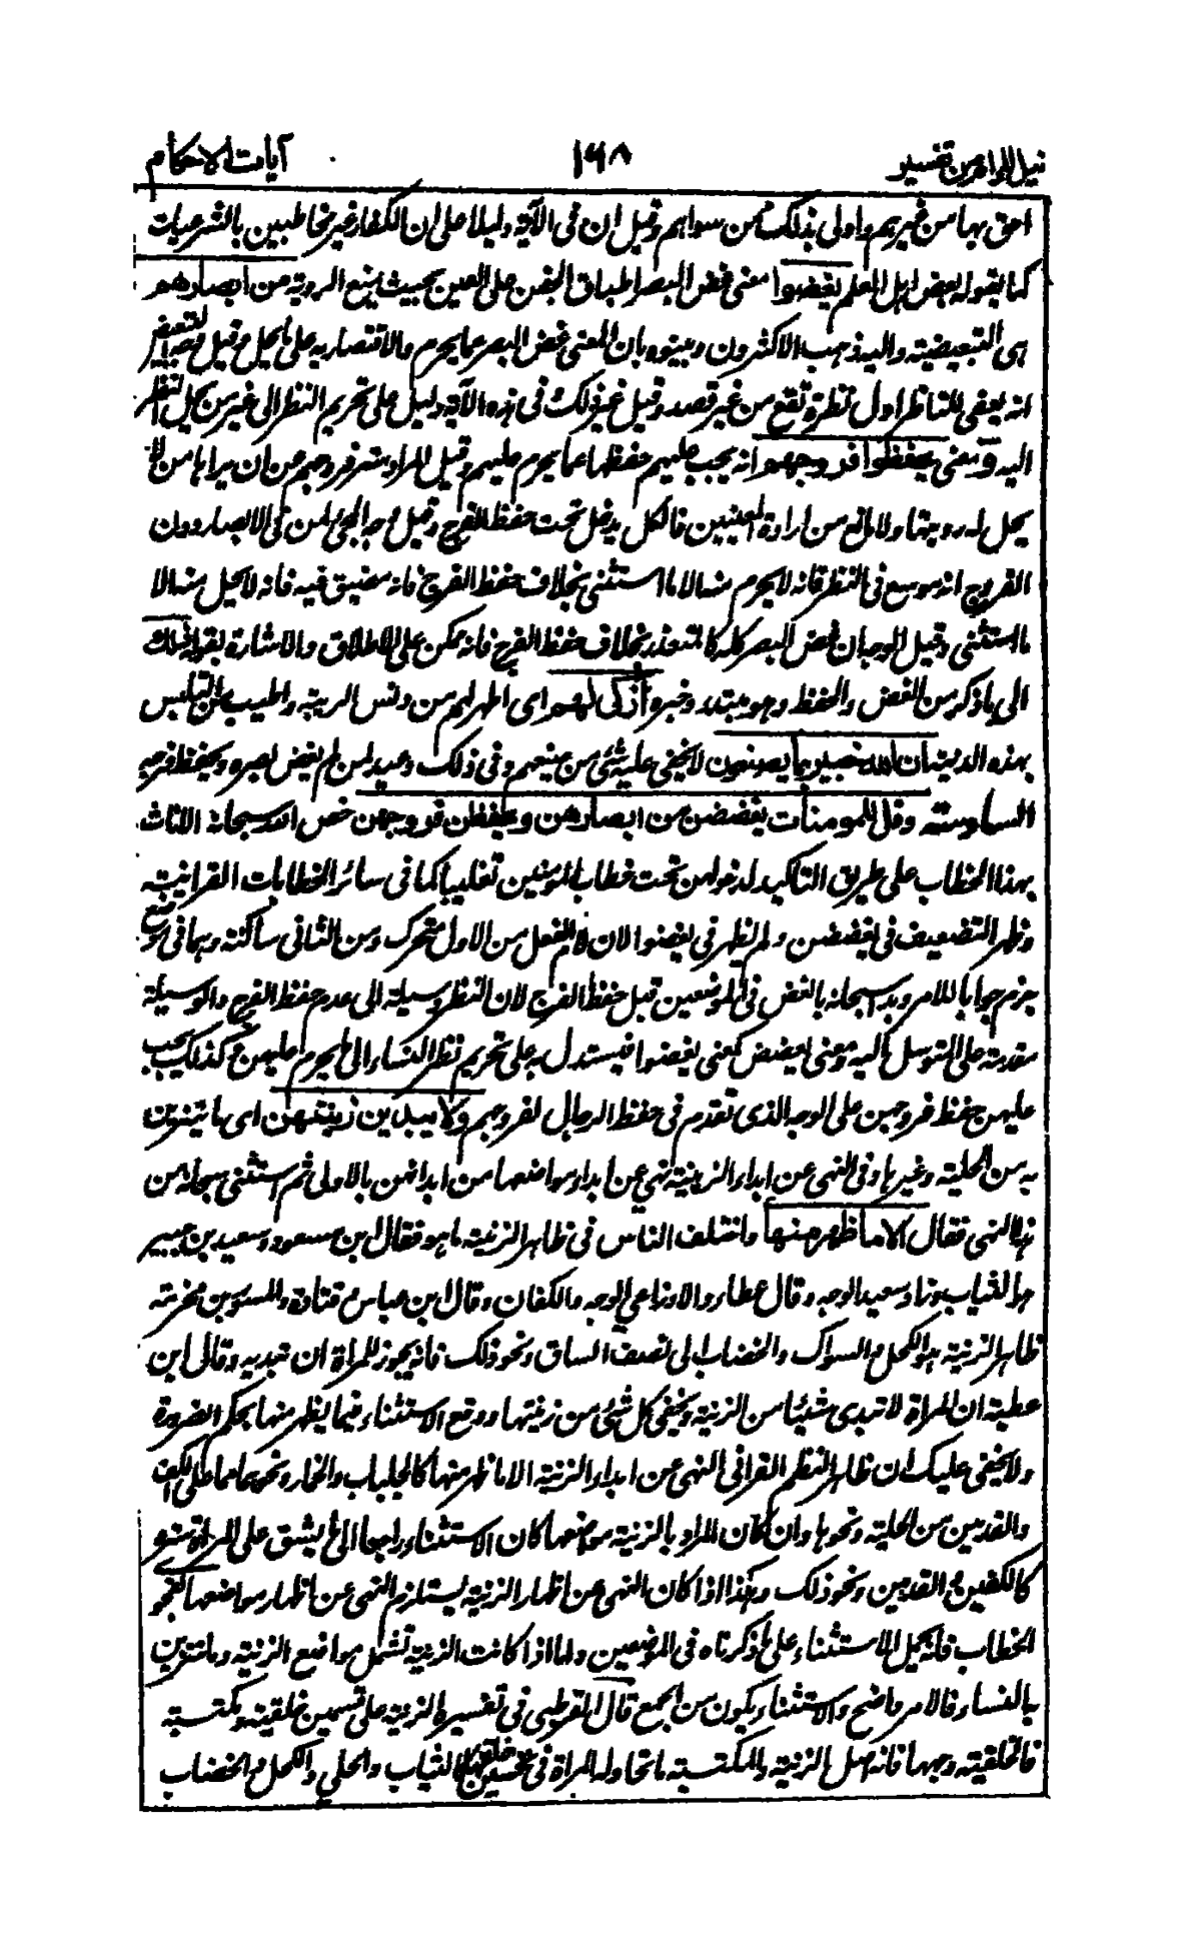 نيل المرام من تفسير ١٦٨ آيات الاحكام
احق بها من غيرهم واولى بذلك ممن سواهم وقيل ان فى الآية دليلا على ان الكفار غير مخاطبين بالشرعيات
كما يقوله بعض اهل العلم يغضوا معنى غض البصر اطباق الجفن على العين بحيث يمنع الروية من ابصارهم
هى التبعيضية واليه ذهب الاكثرون وبينوه بان المعنى غض البصر عما يحرم والاقتصار به على ما يحل وقيل وجه التبعيض
انه يعفى للناظر اول نظرة تقع من غير قصد وقيل غير ذلك فى هذه الآية دليل على تحريم النظر الى غير من يحل النظر
اليه و معنى يحفظوا فروجهم انه يجب عليهم حفظها عما يحرم عليهم وقيل المراد ستر فروجهم عن ان يراها من لا
يحل له رويتها ولا مانع من ارادة المعنيين فالكل يدخل تحت حفظ الفرج وقيل وجه المجئ بمن فى الابصار دون
الفروج انه موسع فى النظر فانه لا يحرم منه الا ما استثنى بخلاف حفظ الفرج فانه مضيق فيه فانه لا يحل منه الا
ما استثنى وقيل الوجه ان غض البصر كله كالمتعذر بخلاف حفظ الفرج فانه ممكن على الاطلاق والاشارة بقوله ذلك
الى ما ذكر من الغض والحفظ وهو مبتدء وخبره ازكى لهم اى اطهر لهم من دنس الريبة واطيب من التلبس
بهذه الدنية ان الله خبير بما يصنعون لا يخفى عليه شئ من صنيعهم وفى ذلك وعيد لمن لم يغض بصره ويحفظ فرجه
السادسة وقل للمومنات يغضضن من ابصارهن ويحفظن فروجهن خص الله سبحانه الاناث
بهذا الخطاب على طريق التاكيد لدخولهن تحت خطاب المؤمنين تغليبا كما فى سائر الخطابات القرانية
وظهر التضعيف فى يغضضن ولم يظهر فى يغضوا لان لام الفعل من الاول متحرك ومن الثانى ساكنة وهما فى موضع
جزم جوابا للامر وبدأ سبحانه بالغض فى الموضعين قبل حفظ الفرج لان النظر وسيلة الى عدم حفظ الفرج والوسيلة
مقدمة على المتوسل اليه ومعنى يغضضن كمعنى يغضوا فيستدل به على تحريم نظر النساء الى ما يحرم عليهن وكذلك يجب
عليهن حفظ فروجهن على الوجه الذى تقدم فى حفظ الرجال لفروجهم ولا يبدين زينتهن اى ما يتزين
به من الحلية وغيرها وفى النهى عن ابداء الزينة نهي عن ابداء مواضعها من ابدانهن بالاولى ثم استثنى سبحانه من
هذا النهى فقال الا ما ظهر منها واختلف الناس فى ظاهر الزينة ما هو فقال ابن مسعود وسعيد بن جبير
هو الثياب وزاد سعيد الوجه وقال عطاء والاوزاعي الوجه والكفان وقال ابن عباس وقتادة والمسور بن مخرمة
ظاهر الزينة هو الكحل والسواك والخضاب الى نصف الساق ونحو ذلك فانه يجوز للمراة ان تبديه وقال ابن
عطية ان المراة لا تبدى شيئا من الزينة وتخفى كل شئ من زينتها ووقع الاستثناء فيما يظهر منها بحكم الضرورة
ولا يخفى عليك ان ظاهر النظم القرانى النهى عن ابداء الزينة الا ما ظهر منها كالجلباب والخمار ونحوهما مما على الكف
والقدمين من الحلية ونحوها وان كان المراد بالزينة مواضعها كان الاستثناء راجعا الى ما يشق على المراة ستره
كالكفين والقدمين ونحو ذلك وهكذا اذا كان النهى عن اظهار الزينة يستلزم النهى عن اظهار مواضعها بفحوى
الخطاب فانه يحمل الاستثناء على ما ذكرناه فى الموضعين واما اذا كانت الزينة تشمل مواضع الزينة وما تتزين
بالنساء فالامر واضح والاستثناء يكون من الجمع قال القرطبى فى تفسيره الزينة على قسمين خلقية ومكتسبة
فالخلقية وجهها فانه اصل الزينة والمكتسبة ما تحاوله المراة فى تحسين خلقها كالثياب والحلي والكحل والخضاب